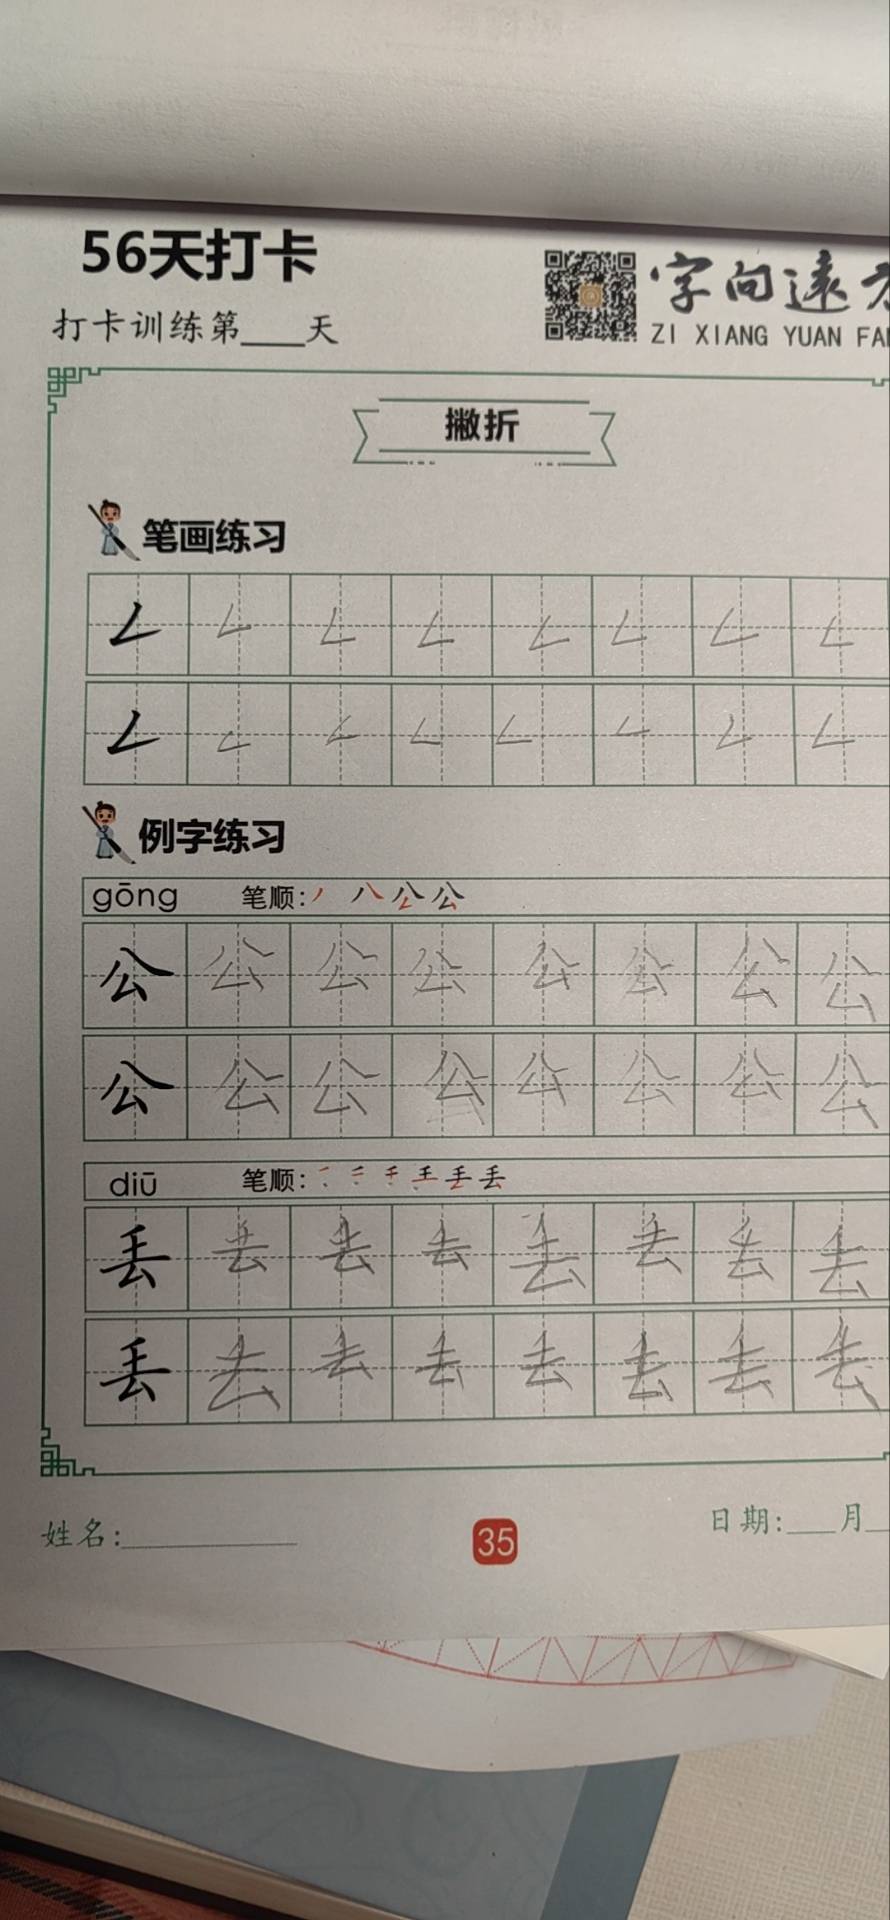 56天打卡
打卡训练第___天
字向遠
ZI XIANG YUAN
撇折
笔画练习
例字练习
gōng 笔顺:
公 公 公 公 公 公 公 公
公 公 公 公 公 公 公 公
diū 笔顺:
丢 丢 丢 丢 丢 丢 丢 丢
丢 丢 丢 丢 丢 丢 丢 丢
姓名:
35
日期:___月